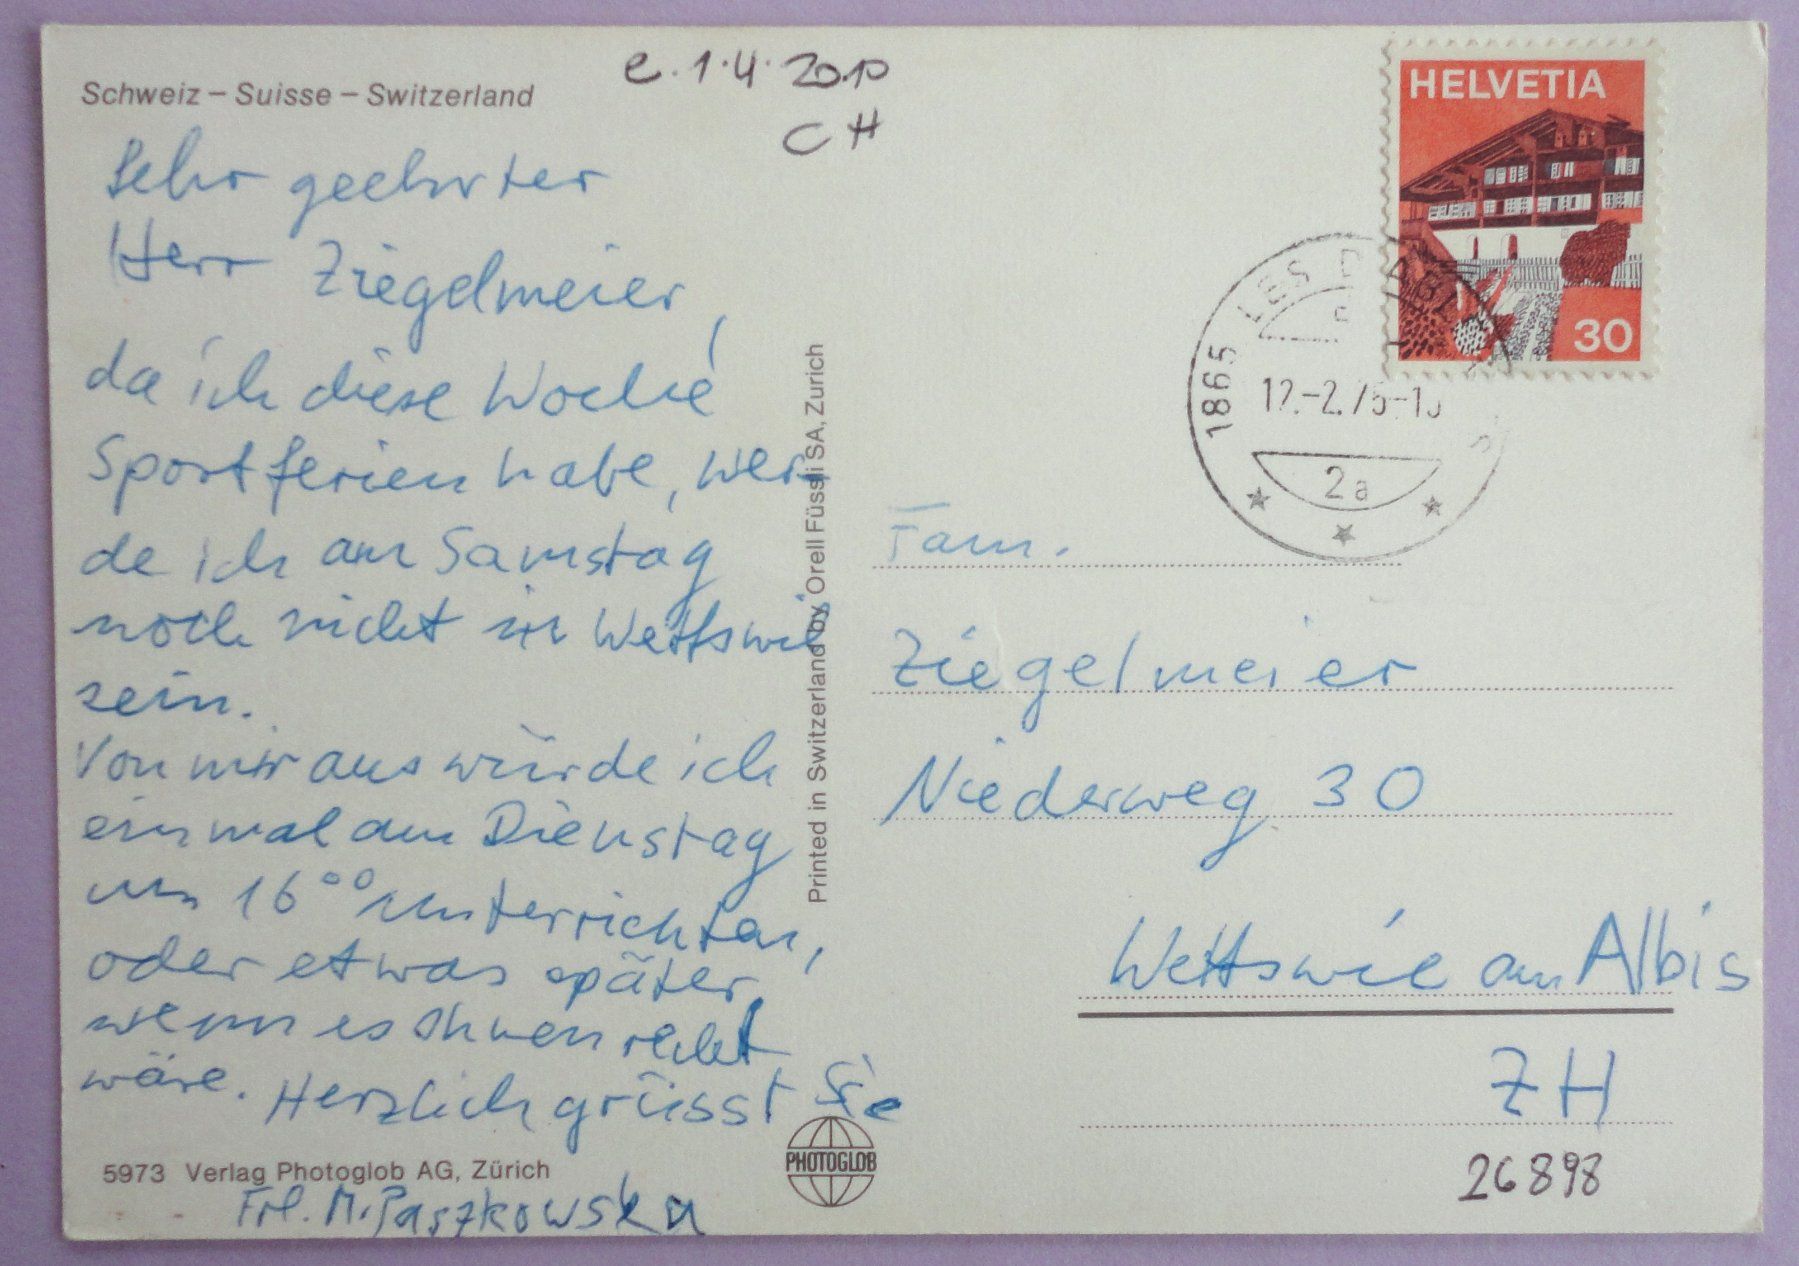 Schweiz – Suisse – Switzerland
e. 1.4.2010
CH
HELVETIA
30
1865 LES DIABL
12.-2.75-1
2a
Sehr geehrter
Herr Ziegelmeier,
da ich diese Woche
Sportferien habe, wer-
de ich am Samstag
noch nicht in Wettswil
sein.
Von mir aus würde ich
einmal am Dienstag
um 16°° unterrichten,
oder etwas später
wenn es Ihnen recht
wäre. Herzlich grüsst Sie
Frl. M. Paszkowska
5973 Verlag Photoglob AG, Zürich
Printed in Switzerland by Orell Füssli SA, Zurich
PHOTOGLOB
Fam.
Ziegelmeier
Niederweg 30
Wettswil am Albis
ZH
26898